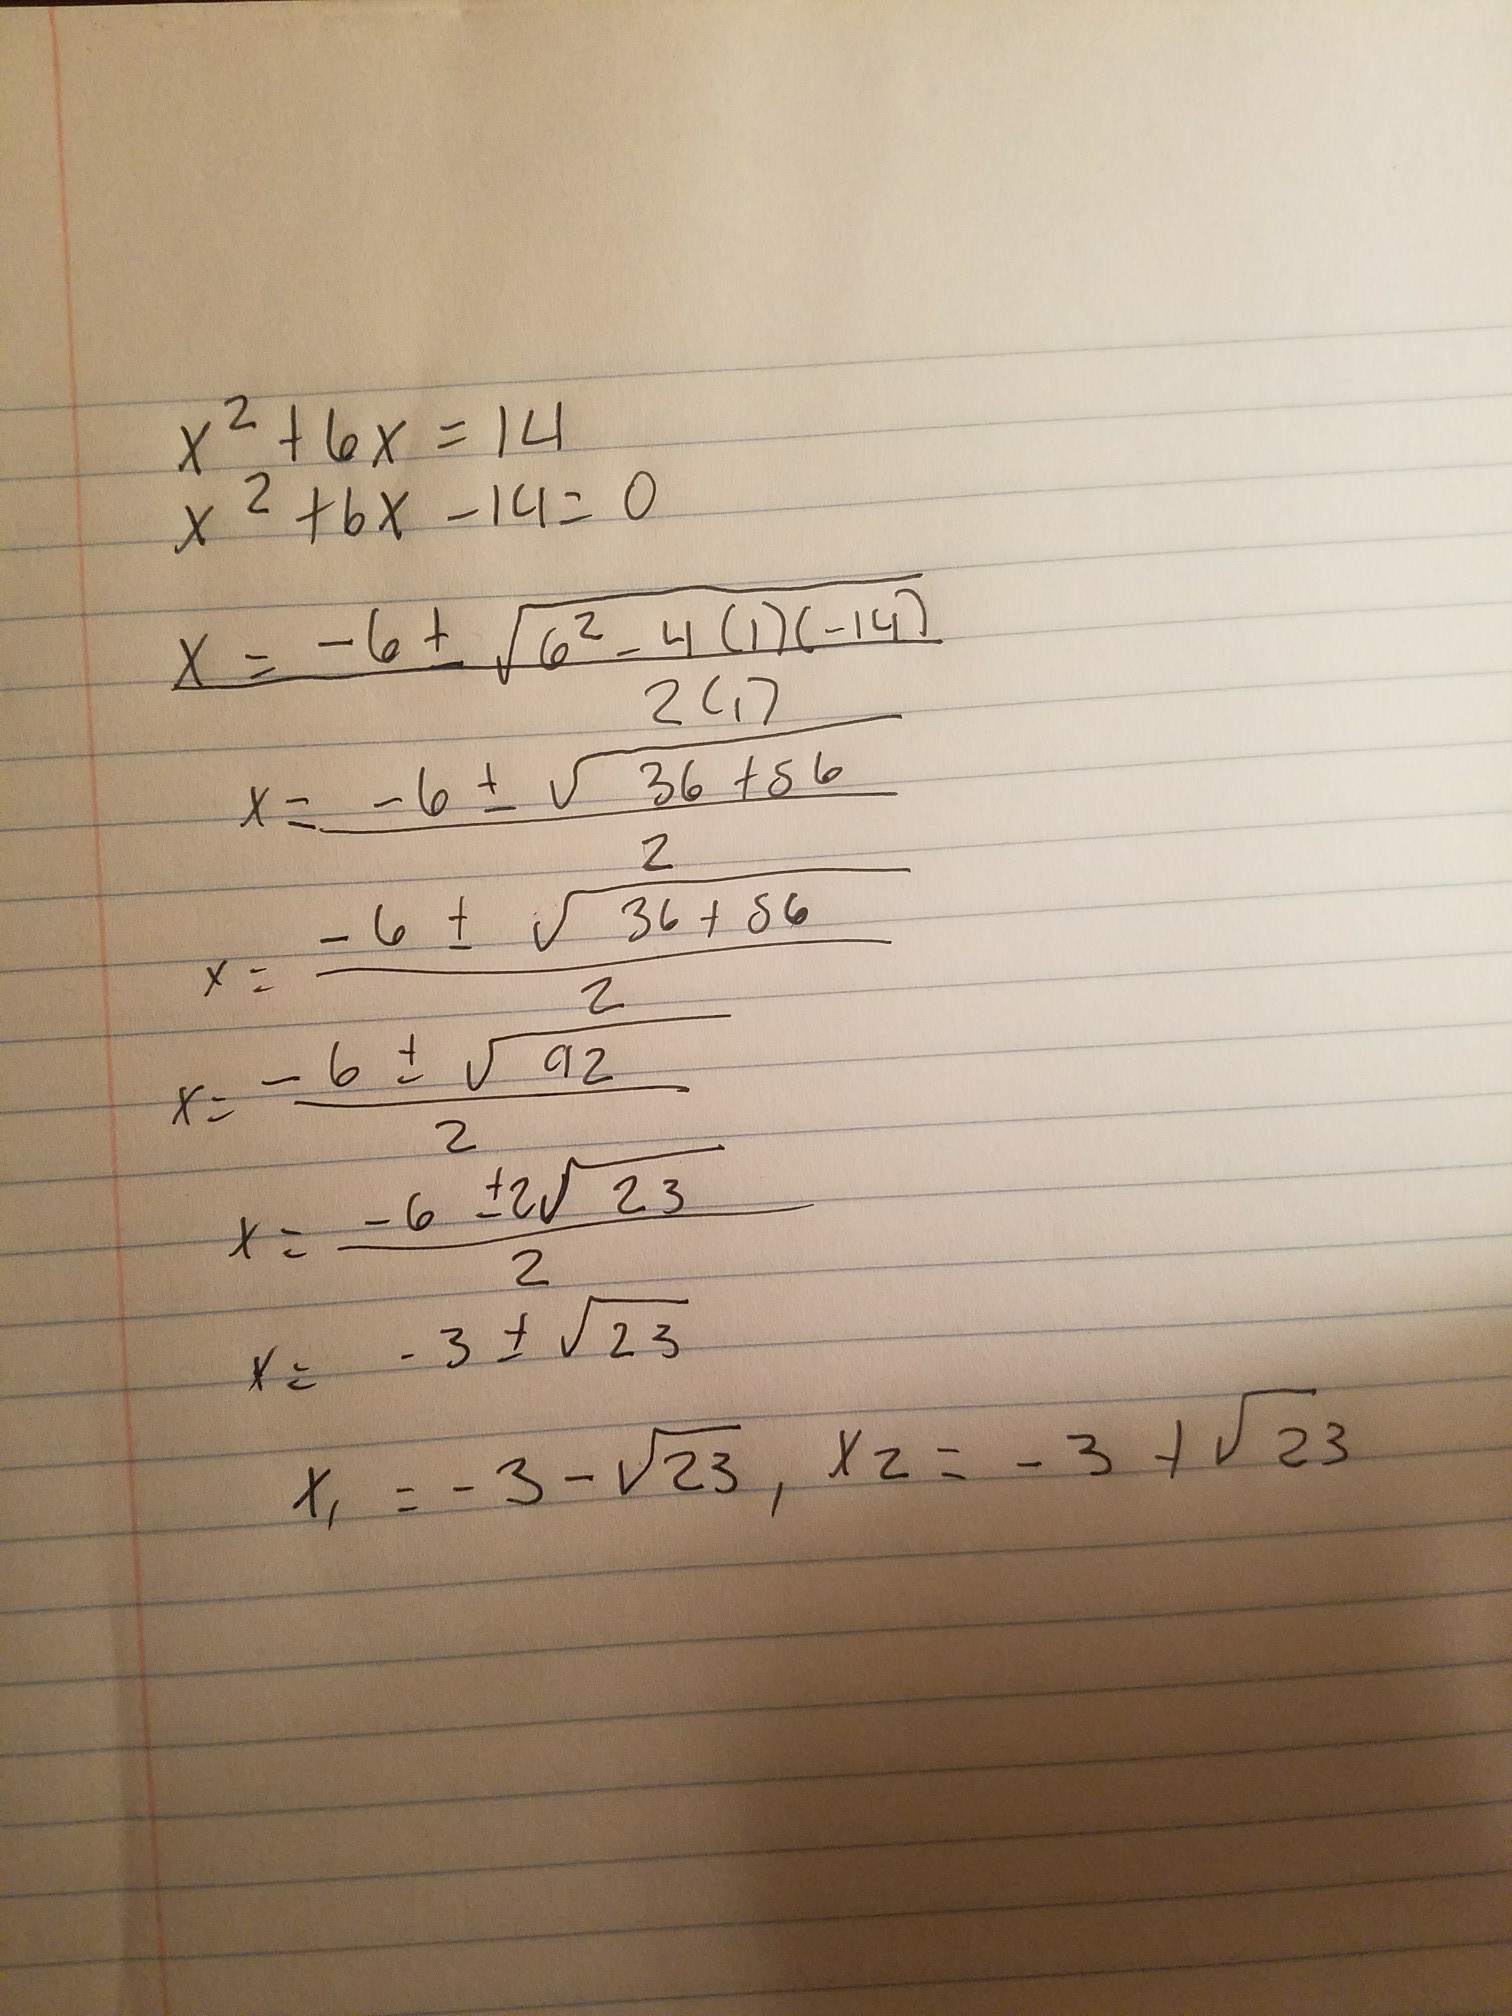 x² + 6x = 14
x² + 6x - 14 = 0
x = -6 ± √(6² - 4(1)(-14))
2(1)
x = -6 ± √(36 + 56)
2
x = -6 ± √(36 + 56)
2
x = -6 ± √92
2
x = -6 ± 2√23
2
x = -3 ± √23
x₁ = -3 - √23, x2 = -3 + √23